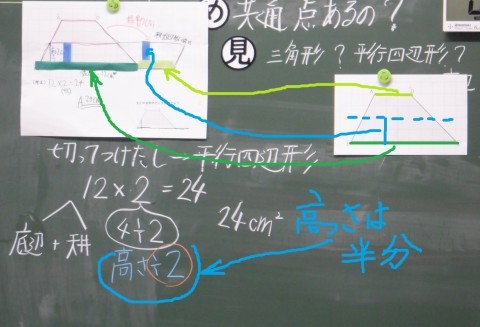 め 共通点あるの?
見
三角形? 平行四辺形?
切ってつけたし→平行四辺形
12×2=24
4÷2
24cm²
底辺+
高さ÷2
高さは
半分